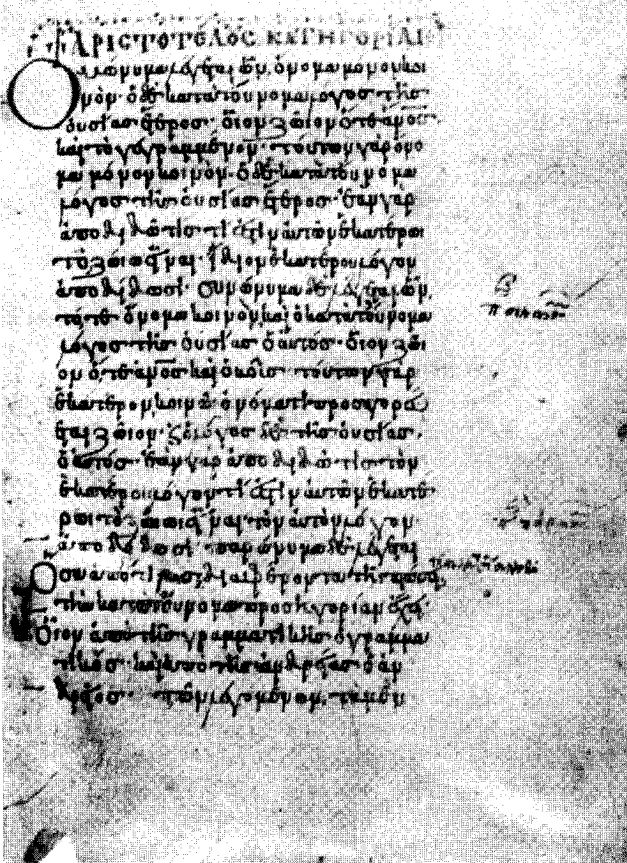 ἈΡΙΣΤΟΤΕΛΟΥΣ ΚΑΤΗΓΟΡΙΑΙ
Ὁμώνυμα λέγεται ὧν ὄνομα μόνον κοι
νὸν· ὁ δὲ κατὰ τοὔνομα λόγος τῆς
οὐσίας ἕτερος· οἷον ζῶιον ὅ τε ἄνος
καὶ τὸ γεγραμμένον· τούτων γὰρ ὄνο
μα μόνον κοινόν· ὁ δὲ κατὰ τοὔνομα
λόγος τῆς οὐσίας ἕτερος· ἐὰν γὰρ
ἀποδιδῶ τίς τί ἐστιν αὐτῶν ἑκατέρωι
τὸ ζώιωι εἶναι· ἴδιον ἑκατέρου λόγον
ἀποδώσει· συνώνυμα δὲ λέγεται ὧν
τό τε ὄνομα κοινὸν, καὶ ὁ κατὰ τοὔνομα
λόγος τῆς οὐσίας ὁ αὐτός· οἷον ζῶι
ον ὅ τε ἄνος καὶ ὁ βοῦς· τούτων γὰρ
ἑκάτερον κοινῶ ὀνόματι προσαγορεύ
εται ζῶιον· καὶ ὁ λόγος δὲ τῆς οὐσίας
ὁ αὐτός· ἐὰν γὰρ ἀποδιδῶ τις τὸν
ἑκατέρου λόγον τί ἐστιν αὐτῶν ἑκατέ
ρωι τὸ ζώωι εἶναι· τὸν αὐτὸν λόγον
ἀποδώσει· παρώνυμα δὲ λέγεται
ὅσα ἀπό τινος διαφέροντα τῆ πτώσει
τὴν κατὰ τοὔνομα προσηγορίαν ἔχει·
οἷον ἀπὸ τῆς γραμματικῆς ὁ γραμμα
τικὸς· καὶ ἀπὸ τῆς ἀνδρείας ὁ ἀν
δρεῖος· τῶν λεγομένων, τὰ μὲν